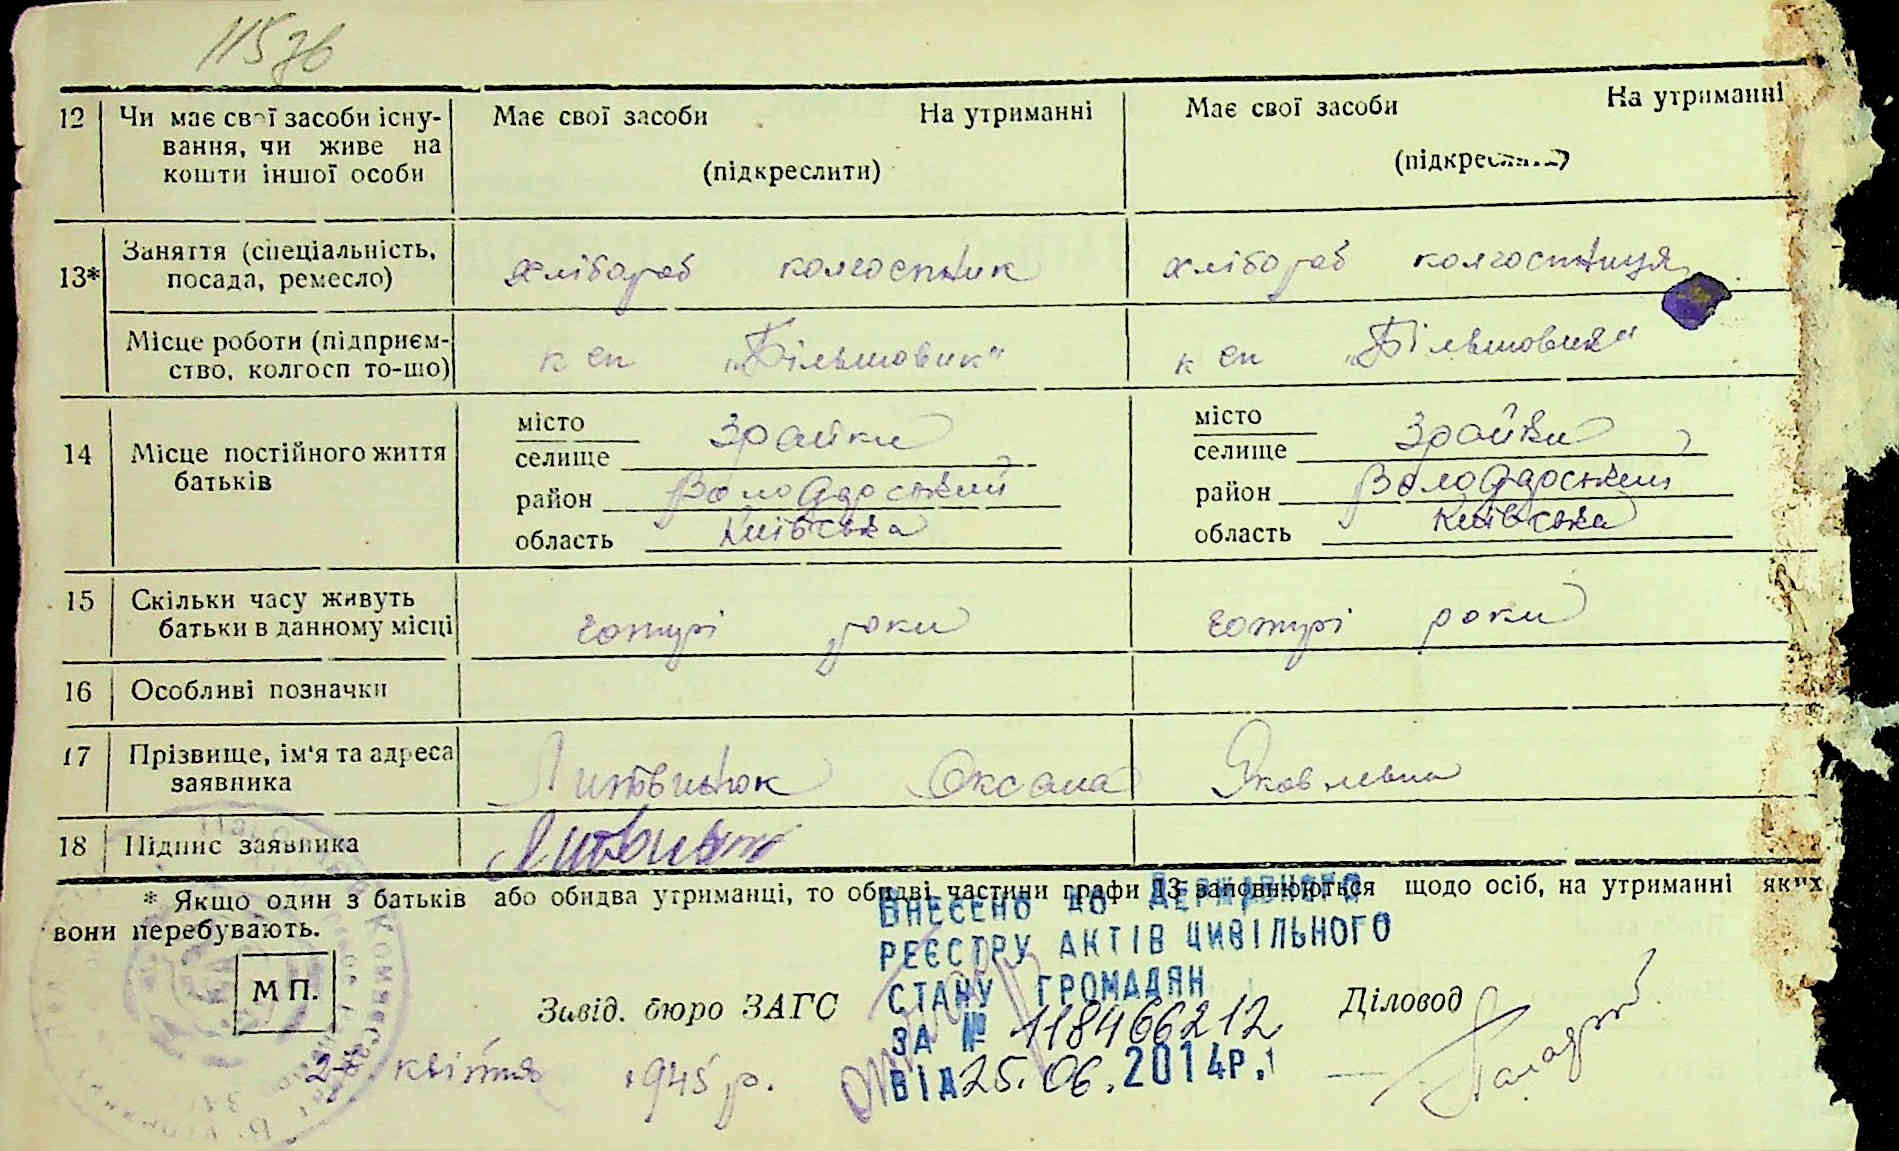 115зв
12 Чи має свої засоби існу- Має свої засоби На утриманні Має свої засоби На утриманні
вання, чи живе на
кошти іншої особи (підкреслити) (підкреслити)
13* Заняття (спеціальність, хлібороб колгоспник хлібороб колгоспниця
посада, ремесло)
Місце роботи (підприєм- к сп „Більшовик" к сп „Більшовик"
ство, колгосп то-що)
14 Місце постійного життя місто Зрайки місто Зрайки
батьків селище селище
район Володарський район Володарський
область Київська область Київська
15 Скільки часу живуть чотирі роки чотирі роки
батьки в данному місці
16 Особливі позначки
17 Прізвище, ім'я та адреса Литвинюк Оксана Яковлевна
заявника
18 Підпис заявника Литвинюк
* Якщо один з батьків або обидва утриманці, то обидві частини графи 13 заповнюються щодо осіб, на утриманні яких
вони перебувають.
ВНЕСЕНО ДО ДЕРЖАВНОГО
РЕЄСТРУ АКТІВ ЦИВІЛЬНОГО
СТАНУ ГРОМАДЯН
ЗА № 118466212
ВІД 25.06.2014р.
М П. Завід. бюро ЗАГС Діловод
квітня 1945 р.